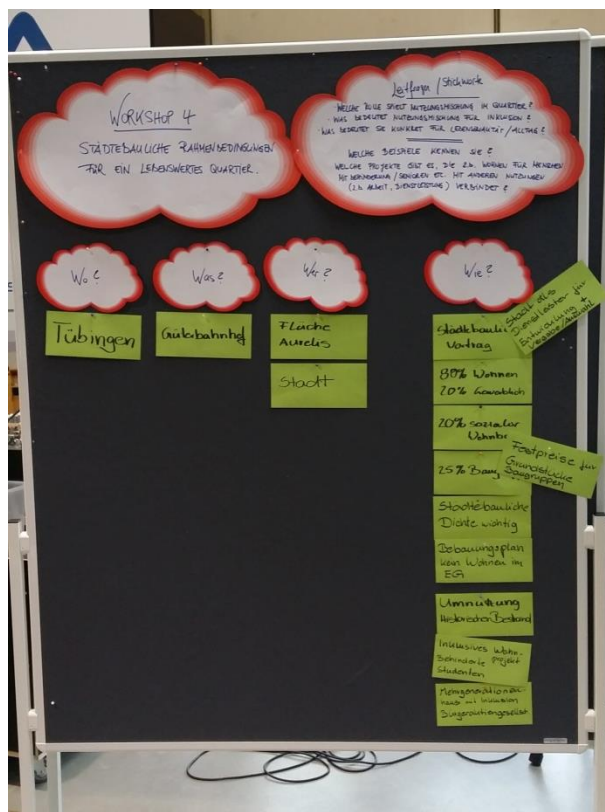 WORKSHOP 4
STÄDTEBAULICHE RAHMENBEDINGUNGEN
FÜR EIN LEBENSWERTES QUARTIER.
Leitfragen / Stichworte
WELCHE ROLLE SPIELT NUTZUNGSMISCHUNG IM QUARTIER?
· WAS BEDEUTET NUTZUNGSMISCHUNG FÜR INKLUSION?
· WAS BEDEUTET SIE KONKRET FÜR LEBENSQUALITÄT / ALLTAG?
WELCHE BEISPIELE KENNEN SIE?
WELCHE PROJEKTE GIBT ES, DIE z.b. WOHNEN FÜR MENSCHEN
MIT BEHINDERUNG / SENIOREN ETC. MIT ANDEREN NUTZUNGEN
(z.b. ARBEIT, DIENSTLEISTUNG) VERBINDET?
Wo?
Was?
Wer?
Wie?
Tübingen
Güterbahnhof
Fläche
Aurelis
Stadt
Städtebaulic
Vertrag
Stadt als
Dienstleister für
Entwicklung +
Vergabe/Auswahl
80% Wohnen
20% Gewerblich
20% sozialer
Wohnba
25% Baug
Festpreise für
Grundstücke
Baugruppen
Städtebauliche
Dichte wichtig
Bebauungsplan
kein Wohnen im
EG
Umnutzung
Historischer Bestand
Inklusives Wohn-
Behinderte projekt
Studenten
Mehrgenerationen-
haus mit Inklusion